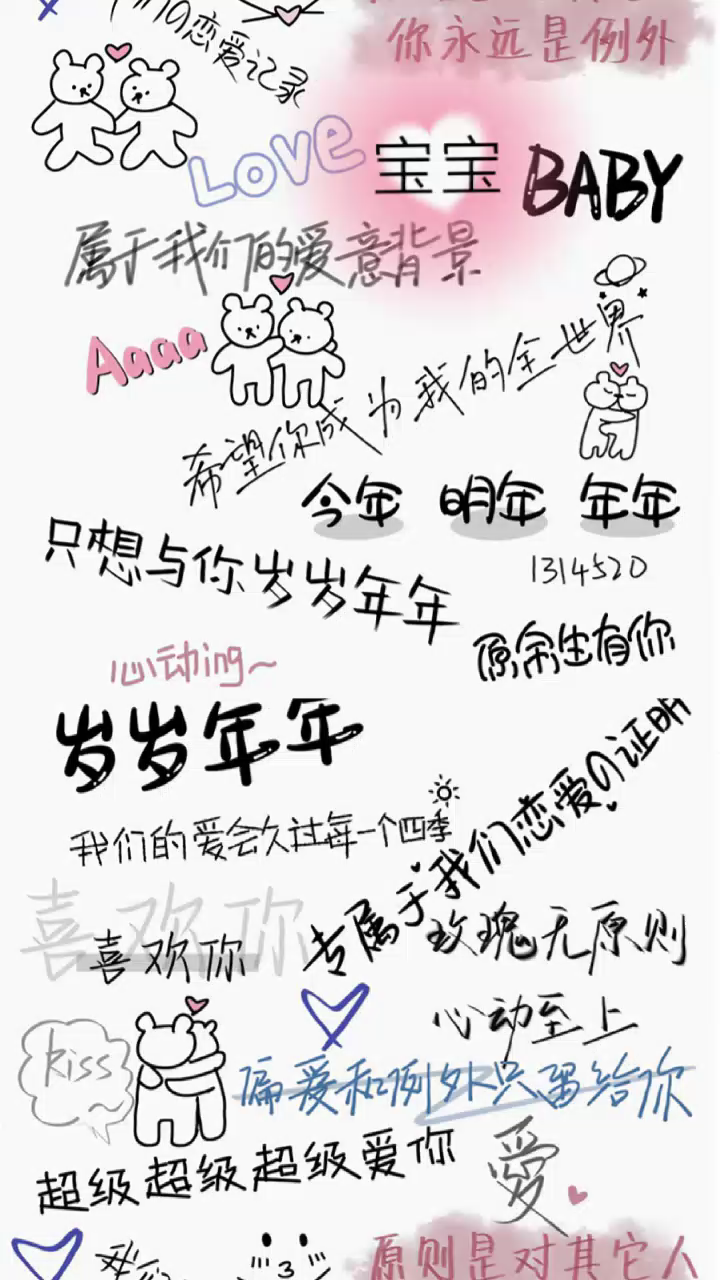 的恋爱记录
你永远是例外
LOVE
宝宝
BABY
属于我们的爱意背景
Aaaa
希望你成为我的全世界
今年 明年 年年
只想与你岁岁年年
1314520
原余生有你
心动ing~
岁岁年年
专属于我们恋爱の证明
我们的爱会久过每一个四季
喜欢你
喜欢你
玫瑰无原则
心动至上
kiss
偏爱和例外只留给你
超级超级超级爱你
愛
我们
原则是对其它人